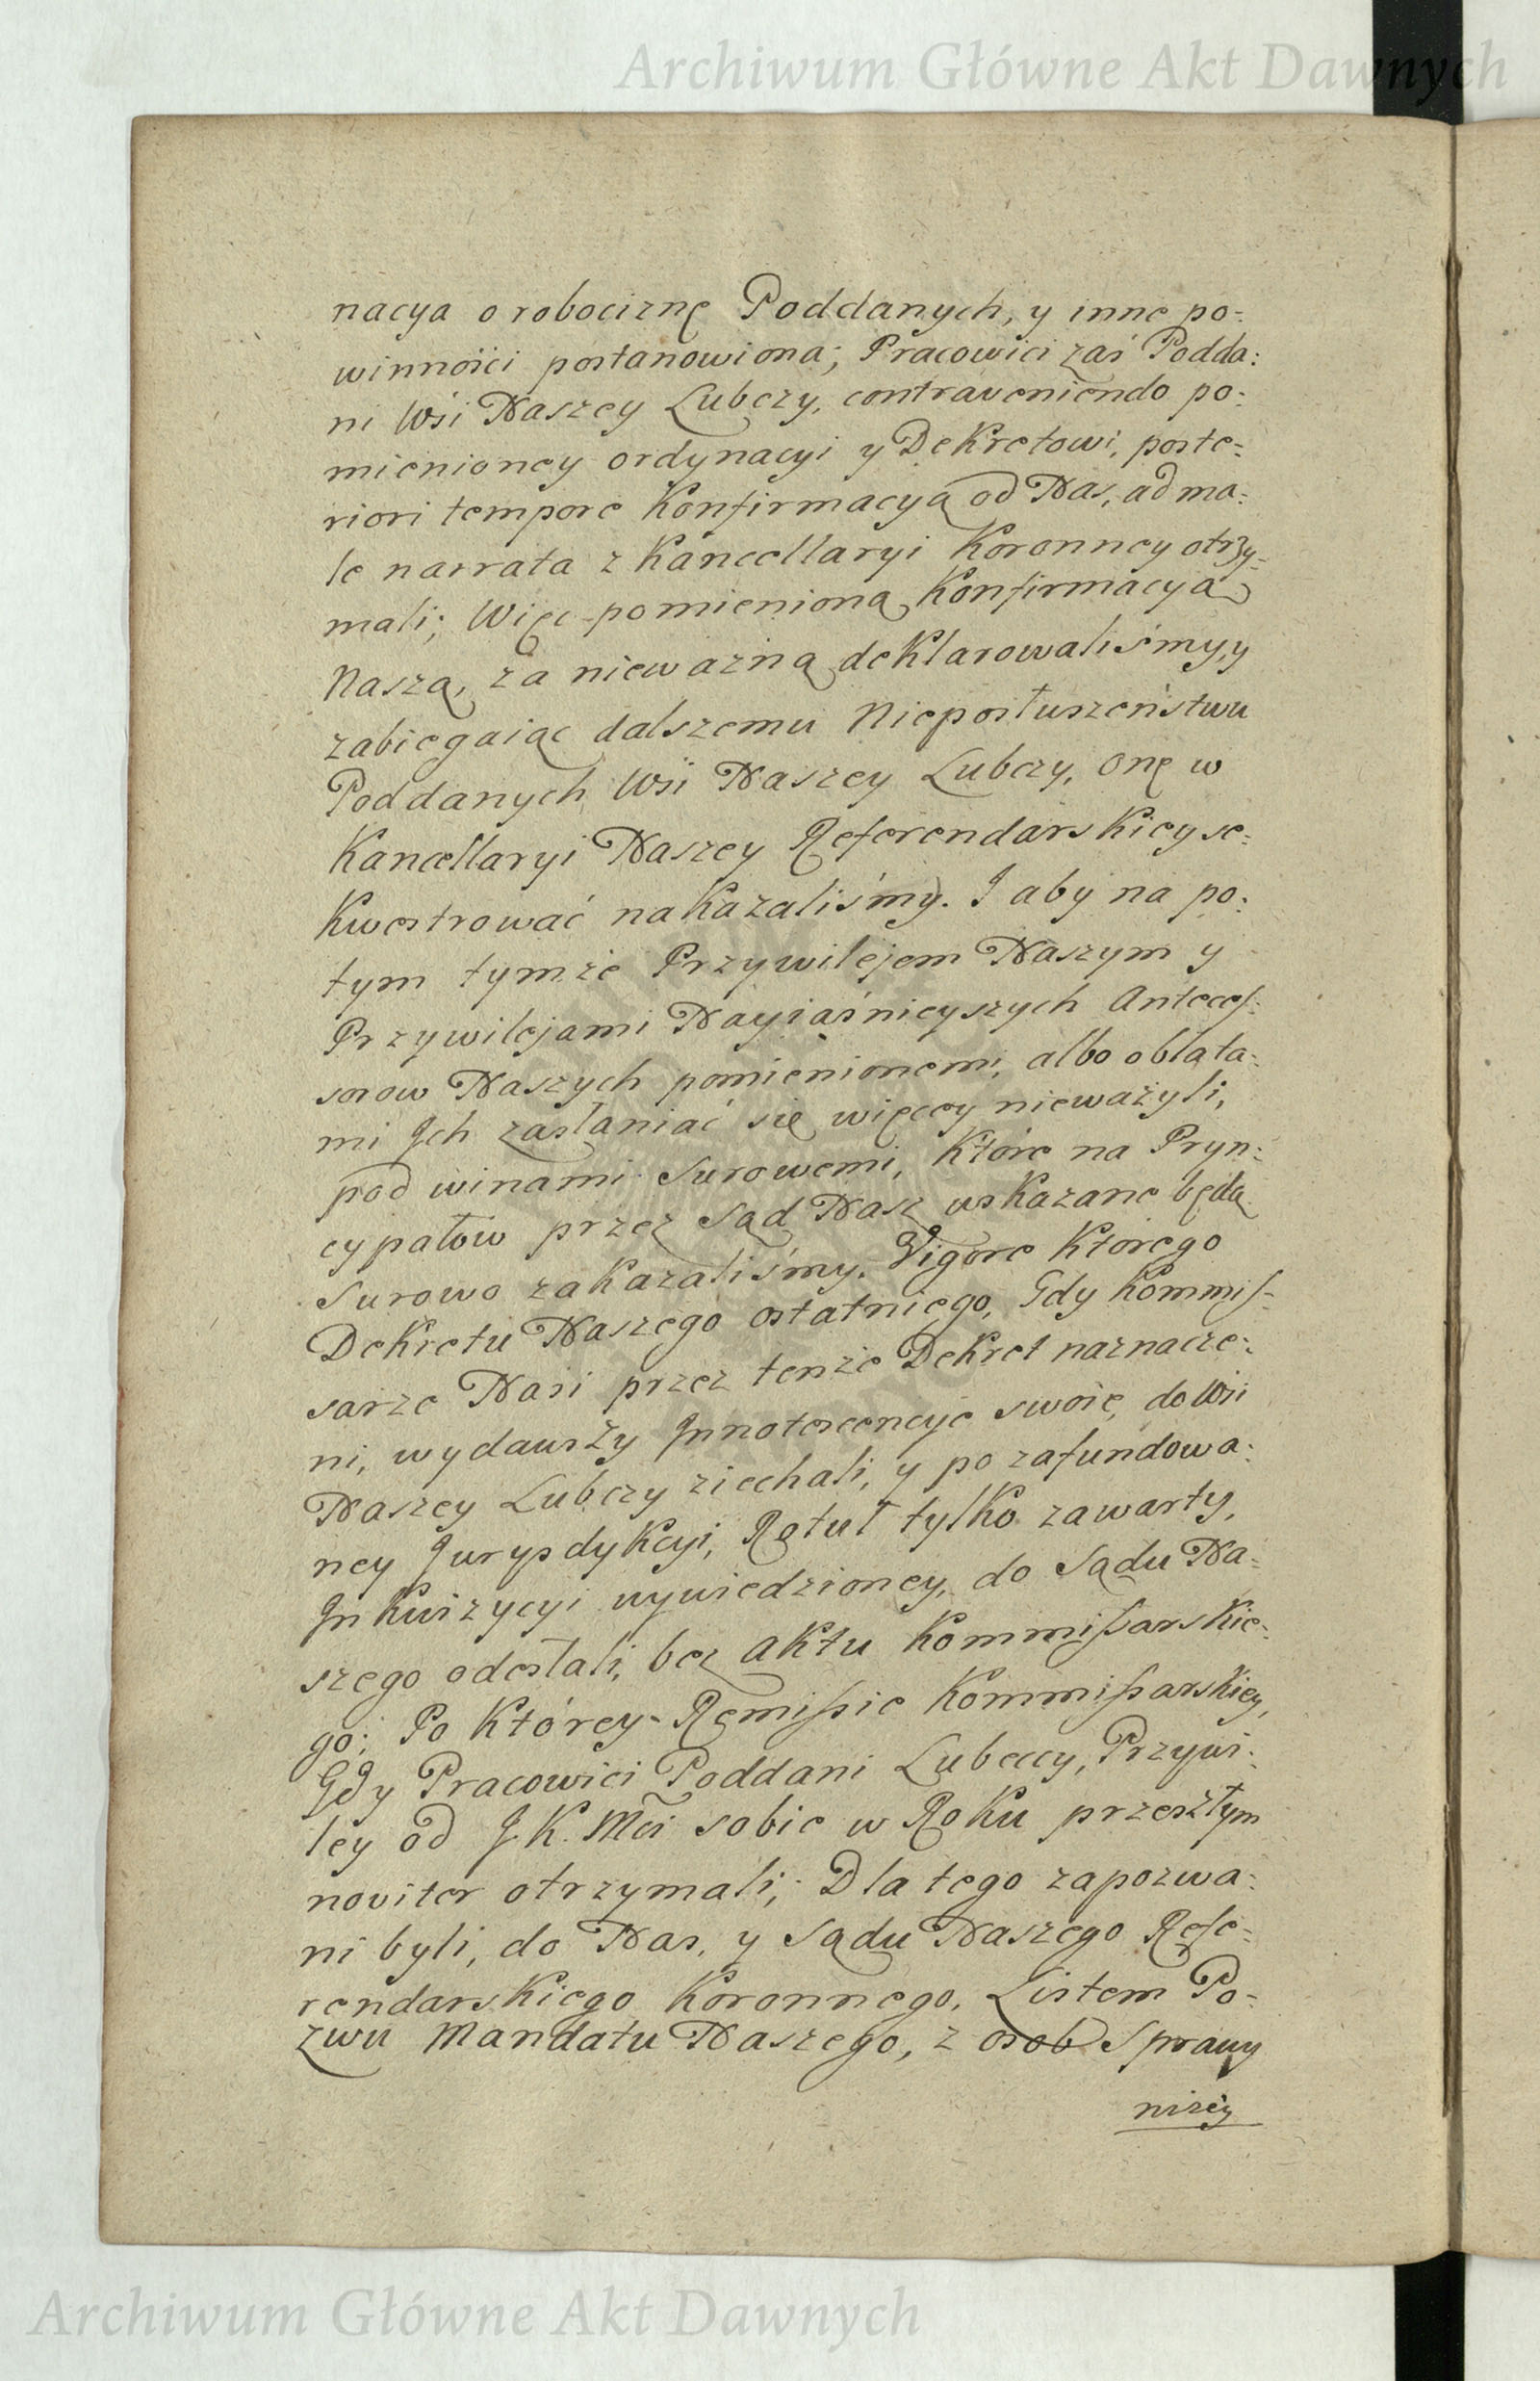 Archiwum Główne Akt Dawnych
nacya o robociznę Poddanych, y inne po-
winności postanowiona; Pracowici zaś Podda:
ni Wsi Naszey Lubczy, contraveniendo po:
mienioney ordynacyi y Dekretowi, poste-
riori tempore Konfirmacyą od Nas, ad ma:
le narrata z Kancellaryi Koronney otrzy-
mali; Więc pomienioną Konfirmacyą
Naszą, za nieważną deklarowaliśmy, y
zabiegaiąc dalszemu Nieposłuszeństwu
Poddanych Wsi Naszey Lubczy, onę w
Kancellaryi Naszey Referendarskiey se-
kwestrować nakazaliśmy. I aby na po:
tym tymże Przywilejem Naszym y
Przywilejami Nayiaśnieyszych Anteces-
sorow Naszych pomienionemi, albo oblata:
mi Ich zasłaniać się więcey nieważyli,
pod winami surowemi, które na Pryn:
cypałow przez Sąd Nasz wskazane będą
surowo zakazaliśmy. Vigore Ktorego
Dekretu Naszego ostatniego, Gdy Kommis-
sarze Nasi przez tenże Dekret naznacze:
ni, wydawszy Innotescencye swoie, do Wsi
Naszey Lubczy ziechali, y po zafundowa:
ney Jurysdykcyi, Rotuł tylko zawarty,
Inkwizycyi wywiedzioney, do Sądu Na-
szego odesłali, bez aktu Kommissarskie-
go; Po Którey Remissie Kommissarskiey,
Gdy Pracowici Poddani Lubeccy, Przywi:
ley od J. K. Mci sobie w Roku przeszłym
noviter otrzymali; Dla tego zapozwa:
ni byli, do Nas, y Sądu Naszego Refe-
rendarskiego Koronnego, Listem Po-
zwu Mandatu Naszego, z osob Sprawy
niżey
Archiwum Główne Akt Dawnych